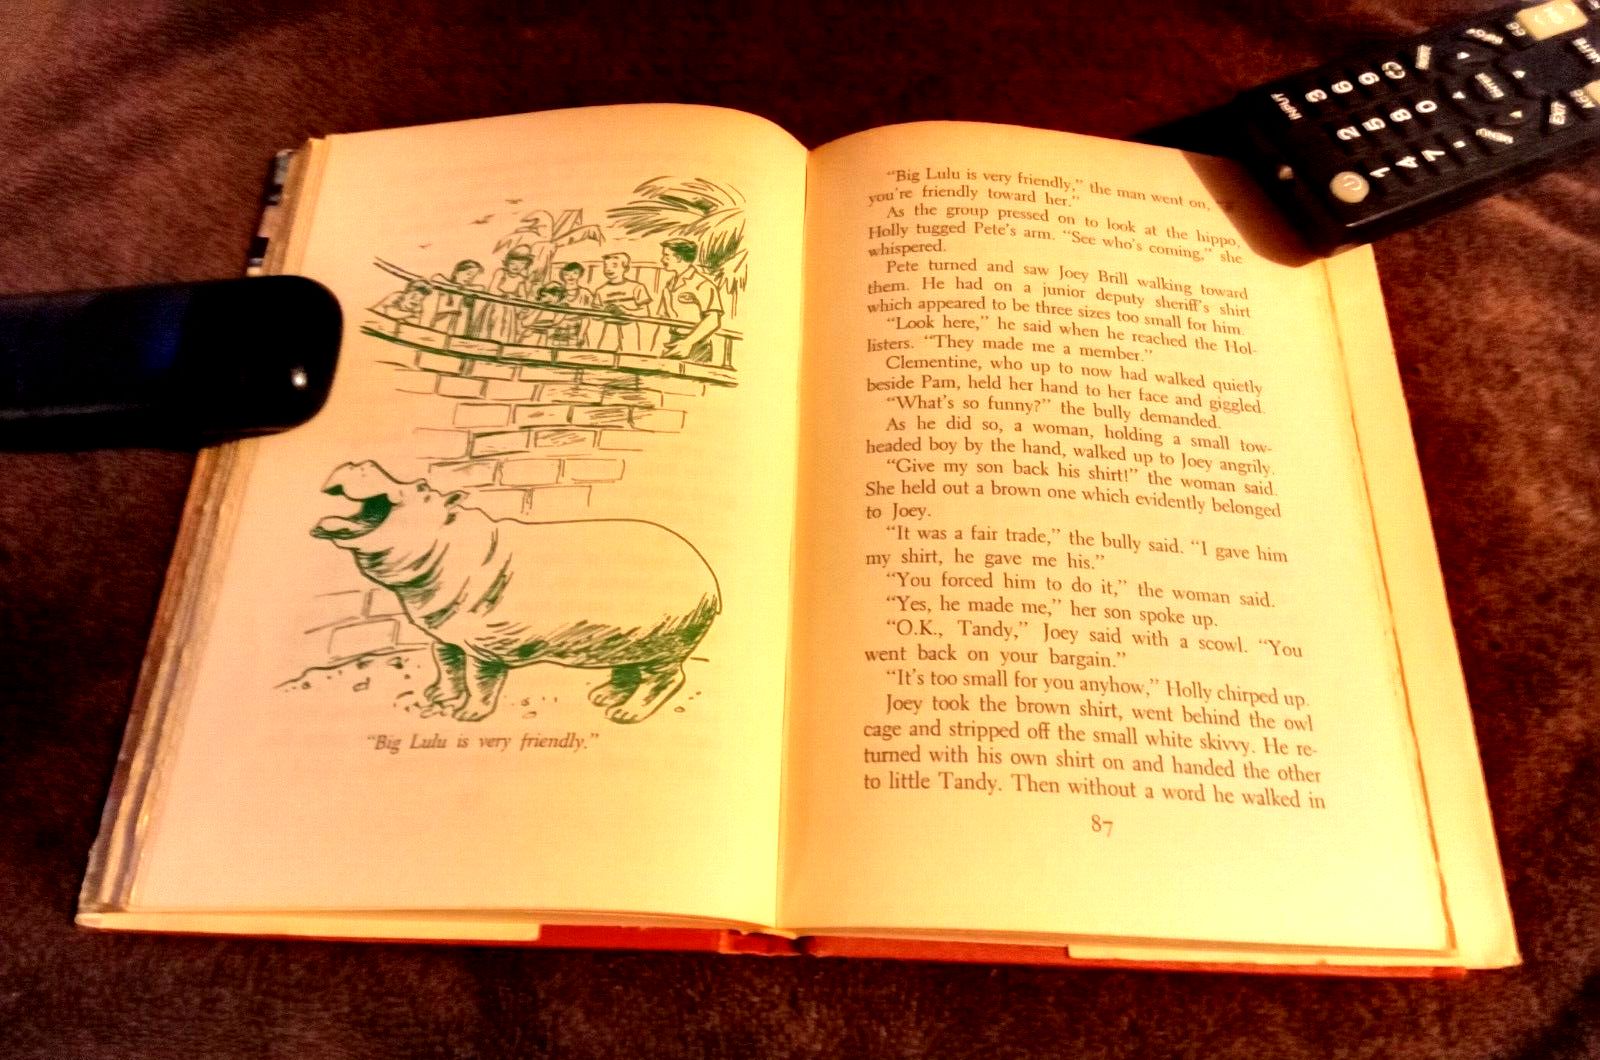 "Big Lulu is very friendly."
"Big Lulu is very friendly," the man went on,
you're friendly toward her."
As the group pressed on to look at the hippo,
Holly tugged Pete's arm. "See who's coming," she
whispered.
Pete turned and saw Joey Brill walking toward
them. He had on a junior deputy sheriff's shirt
which appeared to be three sizes too small for him.
"Look here," he said when he reached the Hol-
listers. "They made me a member."
Clementine, who up to now had walked quietly
beside Pam, held her hand to her face and giggled.
"What's so funny?" the bully demanded.
As he did so, a woman, holding a small tow-
headed boy by the hand, walked up to Joey angrily.
"Give my son back his shirt!" the woman said.
She held out a brown one which evidently belonged
to Joey.
"It was a fair trade," the bully said. "I gave him
my shirt, he gave me his."
"You forced him to do it," the woman said.
"Yes, he made me," her son spoke up.
"O.K., Tandy," Joey said with a scowl. "You
went back on your bargain."
"It's too small for you anyhow," Holly chirped up.
Joey took the brown shirt, went behind the owl
cage and stripped off the small white skivvy. He re-
turned with his own shirt on and handed the other
to little Tandy. Then without a word he walked in
87
INPUT
3 6 9
2 5 8 0
1 4 7 -
MENU
EXIT